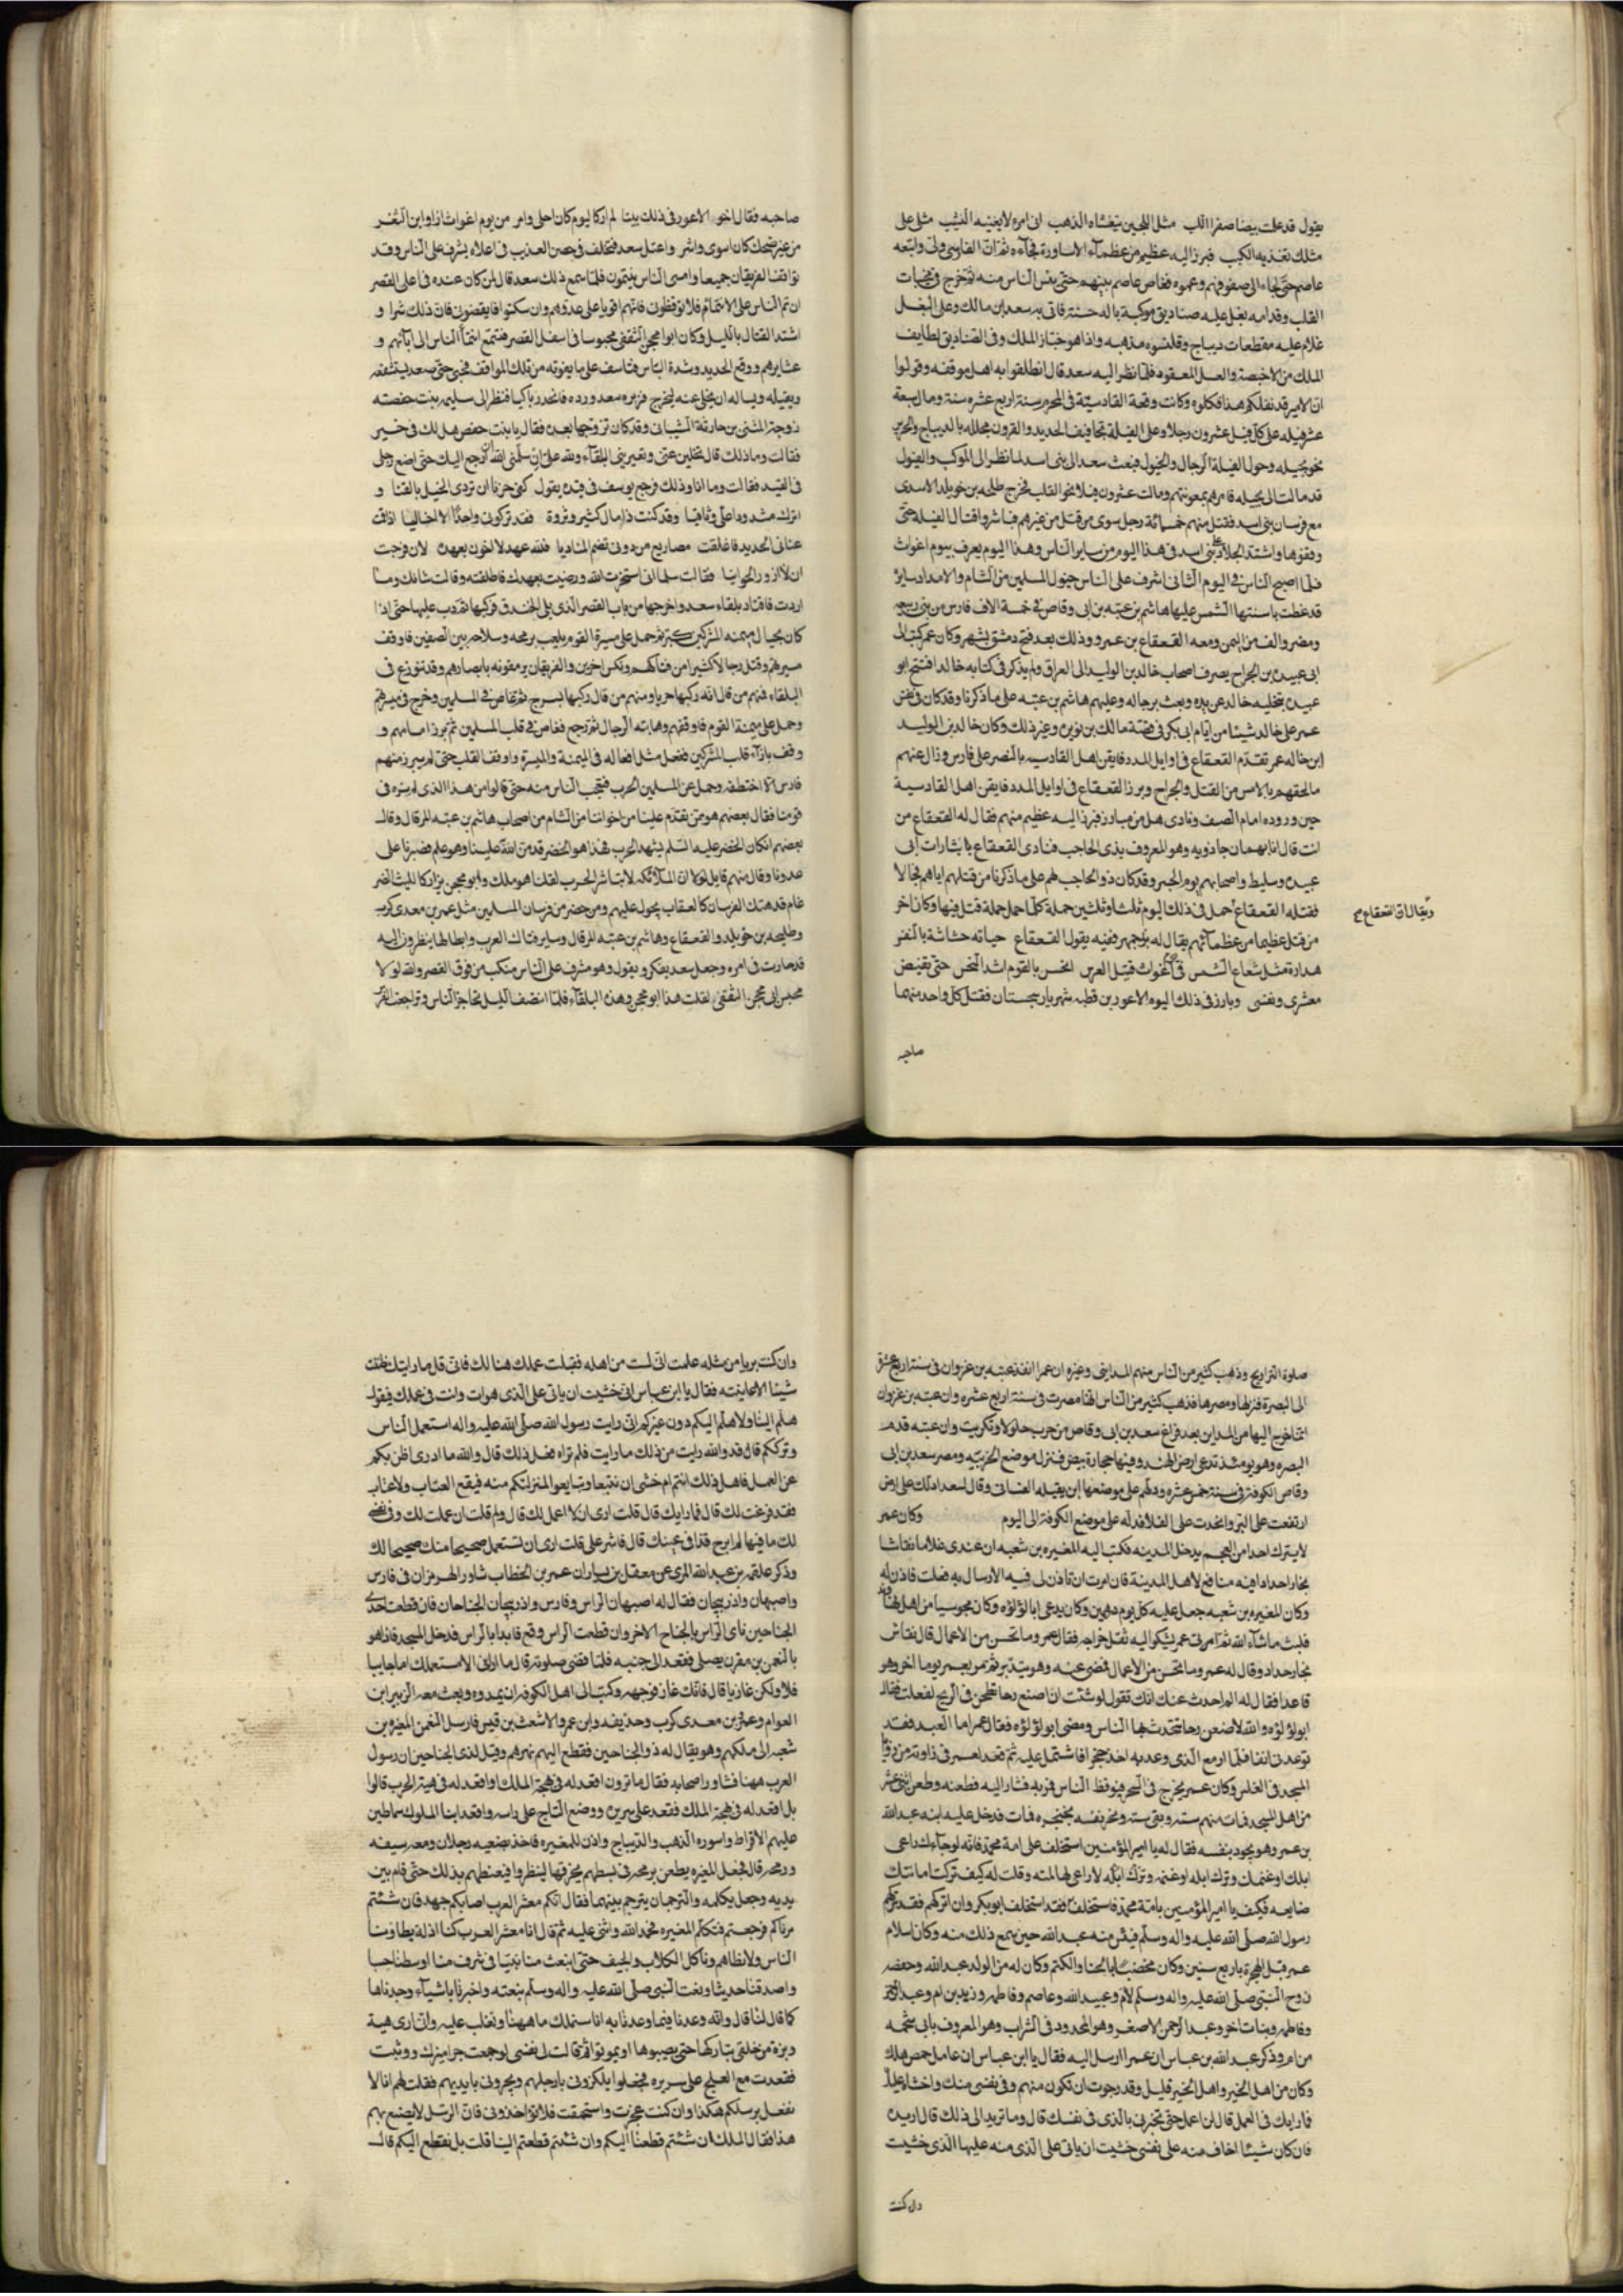 يقول قد علت بيضا صفرا اللبب مثل اللجين يتغشاه الذهب انى امرء لا يعنيه النسب مثلى على
مثلك تغذيه الكتب فبرز اليه عظيم من عظمآء الاساورة فجآءه ثم ان الفارسى ولى واتبعه
عاصم حتى لجاء الى صفوفهم وعموه فغاص عاصم بينهم حتى يئس الناس منه ثم خرج فى مجنبات
القلب وقدامه بغل عليه صناديق موكبة بالة حسنة فاتى به سعد بن مالك وعلى البغل
غلام عليه مقطعات ديباج وقلنسوه مذهبه واذا هو خباز الملك وفى الصناديق لطايف
الملك من الاخبصة والعسل المعقود فلما نظر اليه سعد قال انطلقوا به اهل موقفه وقولوا
ان الامير قد نفلكم هذا فكلوه وكانت وقعة القادسية فى المحرم سنة اربع عشره سنة ومال سبعة
عشر فيله على كل فيل عشرون رجلا وعلى الفيلة تجافيف الحديد والقرون مجلله بالديباج والحرير
نحو بجيله وحول الفيلة الرجال والخيول فبعث سعد الى بنى اسد لما نظر الى الموكب والفيول
قد مالت الى بجيله فامرهم بمعونتهم ومالت عشرون فيلا نحو القلب فخرج طلحه بن خويلد الاسدى
مع فرسان بنى اسد فقتل منهم خمسمائة رجل سوى من قتل من غيرهم فباشروا قتال الفيله حتى
وقفوها واشتد الجلاد على بنى اسد فى هذا اليوم من ساير الناس وهذا اليوم يعرف بيوم اغواث
فلما اصبح الناس فى اليوم الثانى اشرف على الناس خيول المسلمين من الشام والامداد سايرة
قد غطت باسنتها الشمس عليها هاشم بن عتبه بن ابى وقاص فى خمسة الاف فارس من بنى ربيعه
ومضر والف من اليمن ومعه القعقاع بن عمرو وذلك بعد فتح دمشق بشهر وكان عمر كتب الى
ابى عبيده بن الجراح بصرف اصحاب خالد بن الوليد الى العراق ولم يذكر فى كتابه خالدا فشح ابو
عبيده بتخليه خالد عن يده وبعث برجاله وعليهم هاشم بن عتبه على ما ذكرنا وقد كان فى نفس
عمر على خالد شيئا من ايام ابى بكر فى قصة مالك بن نويره وغير ذلك وكان خالد بن الوليد
ابن خاله عمر تقدم القعقاع فى اوايل المدد فايقن اهل القادسيه بالنصر على فارس وزال عنهم
ما لحقهم بالامس من القتل والجراح وبرز القعقاع فى اوايل المدد فايقن اهل القادسية
حين وروده امام الصف ونادى هل من مبارز فبرز اليه عظيم منهم فقال له القعقاع من
انت قال انا بهمان جاذويه وهو المعروف بذى الحاجب فنادى القعقاع يا لثارات ابى
عبيده وسليط واصحابهم يوم الجسر وقد كان ذو الحاجب لهم على ما ذكرنا من قتلهم اياهم فجالا
فقتله القعقاع حمل فى ذلك اليوم ثلثا وثلثين حملة كلما حمل حملة قتل فيها وكان اخر
من قتل عظيما من عظمآئهم يقال له بزرجمهر ففيه يقول القعقاع حباته حثاثة بالنفر
هدارة مثل شعاع الشمس فى يوم اغواث فتيل الفرس انخس بالقوم اشد النخس حتى يفيض
معشرى ونفسى وبارز فى ذلك اليوم الاعور بن قطبه شهريار سجستان فقتل كل واحد منهما
ويقال ان القعقاع صح
صاحبه
صاحبه فقال اخو الاعور فى ذلك بيتا لم ار كاليوم كان احلى وامر من يوم اغواث اذا وابن الثغر
من غير ضحك كان اسوى واشر واعتل سعد فتخلف فى حصن العذيب فى اعلاه يشرف على الناس وقد
تواقفا الفريقان جميعا وامسى الناس ينتمون فلما سمع ذلك سعد قال لمن كان عنده فى اعلى القصر
ان تم الناس على الانتمآء فلا توقظونى فانهم اقويا على عدوهم وان سكتوا فايقظونى فان ذلك شرا و
اشتد القتال بالليل وكان ابوا محجن الثقفى محبوسا فى اسفل القصر فتسمع انتمآ الناس الى ابائهم و
عشايرهم ووقع الحديد وشدة الباس فتاسف على ما يفوته من تلك المواقف فحبى حتى صعد يستشفعه
ويقيله ويساله ان يخلى عنه ليخرج فزبره سعد ورده فانحدر باكيا فنظر الى سليمى بنت حفصه
زوجة المثنى بن حارثة الشيبانى وقد كان تزوجها بعده فقال يا بنت حفص هل لك فى خير
فقالت وما ذلك قال تخلين عنى وتعيرينى البلقآء ولله على ان سلمنى الله ان ارجع اليك حتى اضع رجلى
فى القيد فقالت وما انا وذلك فرجع يوسف فى قيده يقول كفى حزنا ان تردى الخيل بالقنا و
اترك مشدودا على وثاقيا وقد كنت ذا مال كثير وثروة فقد تركونى واحدا لا اخاليا اذا قمت
عنانى الحديد فاغلقت مصاريع من دونى تصم المناديا فلله عهد لا اخون بعهده لان فرجت
ان لا ازور الحوانيا فقالت سلما انى استخرت الله ورضيت بعهدك فاطلقته وقالت شانك وما
اردت فاقتاد بلقاء سعد واخرجها من باب القصر الذى يلى الخندق فركبها ثم دب عليها حتى اذا
كان بحيال ميمنه المشركين كبر ثم حمل على ميسرة القوم يلعب برمحه وسلاحه بين الصفين فاوقف
ميسرتهم وقتل رجالا كثيرا من فتاكهم ونكس اخرين والفريقان يرمقونه بابصارهم وقد تنوزع فى
البلقاء فمنهم من قال انه ركبها عريا ومنهم من قال ركبها بسرج ثم غاص فى المسلمين وخرج فى ميسرتهم
وحمل على ميمنة القوم فاوقفهم وهابته الرجال ثم رجع فغاص فى قلب المسلمين ثم برز امامهم و
وقف بازآء قلب المشركين ففعل مثل افعاله فى الميمنة والميسرة واوقف القلب حتى لم يبرز منهم
فارس الا اختطفه وحمل عن المسلمين الحرب فتعجب الناس منه حتى قالوا من هذا الذى لم نره فى
قومنا فقال بعضهم هو ممن تقدم علينا من اخواننا من الشام من اصحاب هاشم بن عتبه المرقال وقال
بعضهم ان كان الخضر عليه السلم يشهد الحرب فهذا هو الخضر قد من الله علينا وهو علم نصرنا على
عدونا وقال منهم قايل لولا ان الملائكه لا تباشر الحرب لقلنا هو ملك وابو محجن يزار كالليث الضر
غام قد هتك الفرسان كالعقاب يجول عليهم ومن حضر من فرسان المسلمين مثل عمر بن معدى كرب
وطليحه بن خويلد والقعقاع وهاشم بن عتبه المرقال وساير فتاك العرب وابطالها ينظرون اليه
قد حارت فى امره وجعل سعد يفكر ويقول وهو مشرف على الناس منكب من فوق القصر والله لولا
محبس ابى محجن الثقفى لقلت هذا ابو محجن وهذه البلقآء فلما انتصف الليل تحاجز الناس وتراجعت الفرس
صلوة التراويح وذهب كثير من الناس منهم المداينى وغيره ان عمرا انفذ عتبه بن غزوان فى سنة اربع عشرة
الى البصرة فنزلها ومصرها فذهب كثير من الناس انها مصرت فى سنة اربع عشره وان عتبه بن غزوان
انما خرج اليها من المداين بعد فراغ سعد بن ابى وقاص من حرب جلولا وتكريت وان عتبه قدم
البصره وهو يومئذ تدعى ارض الهند وفيها حجارة بيض فنزل موضع الخريبه ومصر سعد بن ابى
وقاص الكوفة فى سنة خمس عشره ودلهم على موضعها ابن بقيله الغسانى وقال لسعد ادلك على ارض
ارتفعت على البر وانحدرت على الفلا فدله على موضع الكوفة الى اليوم وكان عمر
لا يترك احدا من العجم يدخل المدينه فكتب اليه المغيره بن شعبه ان عندى غلاما نقاشا
نجارا حدادا فيه منافع لاهل المدينة فان رايت ان تاذن لى فيه الارسال به فعلت فاذن له
وكان المغيره بن شعبه جعل عليه كل يوم درهمين وكان يدعى ابا لؤلؤه وكان مجوسيا من اهل نهاوند
فلبث ما شآء الله ثم امر الى عمر يشكوا اليه ثقل خراجه فقال عمر وما تحسن من الاعمال قال نقاش
نجار حداد وقال له عمر وما تحسن من الاعمال فمضى عنه وهو يتذمر ثم مر بعمر يوما اخر وهو
قاعد فقال له الم احدث عنك انك تقول لو شئت ان اصنع رحا تطحن فى الريح لفعلت فقال
ابو لؤلؤه والله لاصنعن رحا تتحدث بها الناس ومضى ابو لؤلؤه فقال عمر اما العبد فقد
توعدنى انفا فلما ازمع الذى وعد به اخذ خنجرا فاشتمل عليه ثم قعد لعمر فى زاوية من زوايا
المسجد فى الغلس وكان عمر يخرج فى السحر فيوقظ الناس فمر به فثار اليه فطعنه وطعن اثنى عشر
من اهل المسجد فمات منهم ستة وبقى ستة ونحر نفسه بخنجره فمات فدخل عليه ابنه عبد الله
بن عمر وهو يجود بنفسه فقال له يا امير المؤمنين استخلف على امة محمد فانه لو جآءك راعى
ابلك او غنمك وترك ابله او غنمه وترك ابله لا راعى لها لمته وقلت له كيف تركت امانتك
ضايعه فكيف يا امير المؤمنين بامة محمد فاستخلف فقد استخلف ابو بكر وان اتركهم فقد تركهم
رسول الله صلى الله عليه واله وسلم فيئس منه عبد الله حين سمع ذلك منه وكان اسلام
عمر قبل الهجرة باربع سنين وكان مخضبا بالحنا والكتم وكان له من الولد عبد الله وحفصه
زوج النبى صلى الله عليه واله وسلم لام وعبيد الله وعاصم وفاطمه وزيد من ام وعبد الرحمن
وفاطمه وبنات اخر وعبد الرحمن الاصغر وهو المحدود فى الشراب وهو المعروف بابى شحمه
من ام وذكر عبد الله بن عباس ان عمرا ارسل اليه فقال يا ابن عباس ان عامل حمص هلك
وكان من اهل الخير واهل الخير قليل وقد رجوت ان تكون منهم وفى نفسى منك واخشاه عليك
فما رايك فى العمل قال لن اعمل حتى تخبرنى بالذى فى نفسك قال وما تريد الى ذلك قال اريده
فان كان شيئا اخاف منه على نفسى خشيت ان ياتى على الذى منه عليها الذى خشيت
وان كنت
وان كنت بريا من مثله علمت انى لست من اهله فقبلت عملك هنالك فانى قل ما رايتك ظننت
شيئا الا عاينته فقال يا ابن عباس انى خشيت ان ياتى على الذى هوات وانت فى عملك فيقول
هلم الينا ولا هلم اليكم دون غيركم انى رايت رسول الله صلى الله عليه واله استعمل الناس
وترككم قال قد والله رايت من ذلك ما رايت فلم تراه فعل ذلك قال والله ما ادرى اظن بكم
عن العمل فاهل ذلك انتم ام خشى ان تبتعوا وتبايعوا لمنزلتكم منه فيقع العتاب ولا عتاب
فقد فرغت لك قال فما رايك قال قلت ارى ان لا اعمل لك قال ولم قلت ان عملت لك وفى نفسك
لك ما فيها لم ابرح قذا فى عينك قال فاشر على قلت ارى ان تستعمل صحيحا منك صحيحا لك
وذكر علقمه بن عبد الله المزنى عن معقل بن يسار ان عمر بن الخطاب شاور الهرمزان فى فارس
واصبهان واذربيجان فقال له اصبهان الراس وفارس واذربيجان الجناحان فان قطعت احدى
الجناحين نآى الراس بالجناح الاخر وان قطعت الراس وقع فابدا بالراس فدخل المسجد فاذا هو
بالنعمن بن مقرن يصلى فقعد الى جنبه فلما قضى صلوته قال ما ارانى الا مستعملك اما جابيا
فلا ولكن غازيا قال فانك غاز فوجهه وكتب الى اهل الكوفه ان يمدوه وبعث معه الزبير ابن
العوام وعمرو بن معدى كرب وحذيفه وابن عمر والاشعث بن قيس فارسل النعمن المغيره بن
شعبه الى ملكهم وهو يقال له ذو الجناحين فقطع اليهم نهرهم وقيل لذى الجناحين ان رسول
العرب ههنا فشاور اصحابه فقال ما ترون اقعد له فى بهجة الملك او اقعد له فى هيئة الحرب قالوا
بل اقعد له فى بهجة الملك فقعد على سريره ووضع التاج على راسه واقعد ابنا الملوك سماطين
عليهم الاقراط واسوره الذهب والديباج واذن للمغيره فاخذ بضبعيه رجلان ومعه سيفه
ورمحه قال فجعل المغيره يطعن برمحه فى بسطهم يخرقها لينظروا فيغضبهم بذلك حتى قام بين
يديه وجعل يكلمه والترجمان يترجم بينهما فقال انكم معشر العرب اصابكم جهد فان شئتم
مرناكم ورجعتم فتكلم المغيره فحمد الله واثنى عليه ثم قال انا معشر العرب كنا اذلة يطاونا
الناس ولا نطاهم وناكل الكلاب والجيف حتى ابتعث منا نبيا فى شرف منا اوسطنا حسبا
واصدقنا حديثا وبعث النبى صلى الله عليه واله وسلم بنعته واخبرنا باشيآء وجدناها
كما قال لنا قال وانه وعدنا وفيما وعدنا به انا سنملك ما ههنا ونغلب عليه وانى ارى هيئة
وبزة من خلفى بتاركها حتى يصيبوها او يموتوا ثم قالت لى نفسى لو جمعت جراميزك ووثبت
فقعدت مع العلج على سريره فجعلوا يلكزونى بارجلهم ويجرونى بايديهم فقلت لهم انا لا
نفعل برسلكم هكذا وان كنت عجزت واستحمقت فلا تؤاخذونى فان الرسل لا يصنع بهم
هذا فقال الملك ان شئتم قطعنا اليكم وان شئتم قطعتم الينا قلت بل نقطع اليكم قال